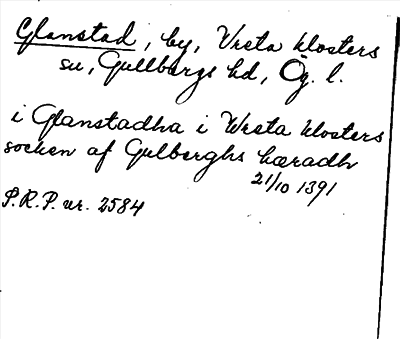 Glanstad, by, Vreta klosters
sn, Gullbergs hd, Ög. l.
i Glanstadha i Wreta klosters
socken af Gulberghs hæradh
21/10 1391
P.R.P. nr. 2584